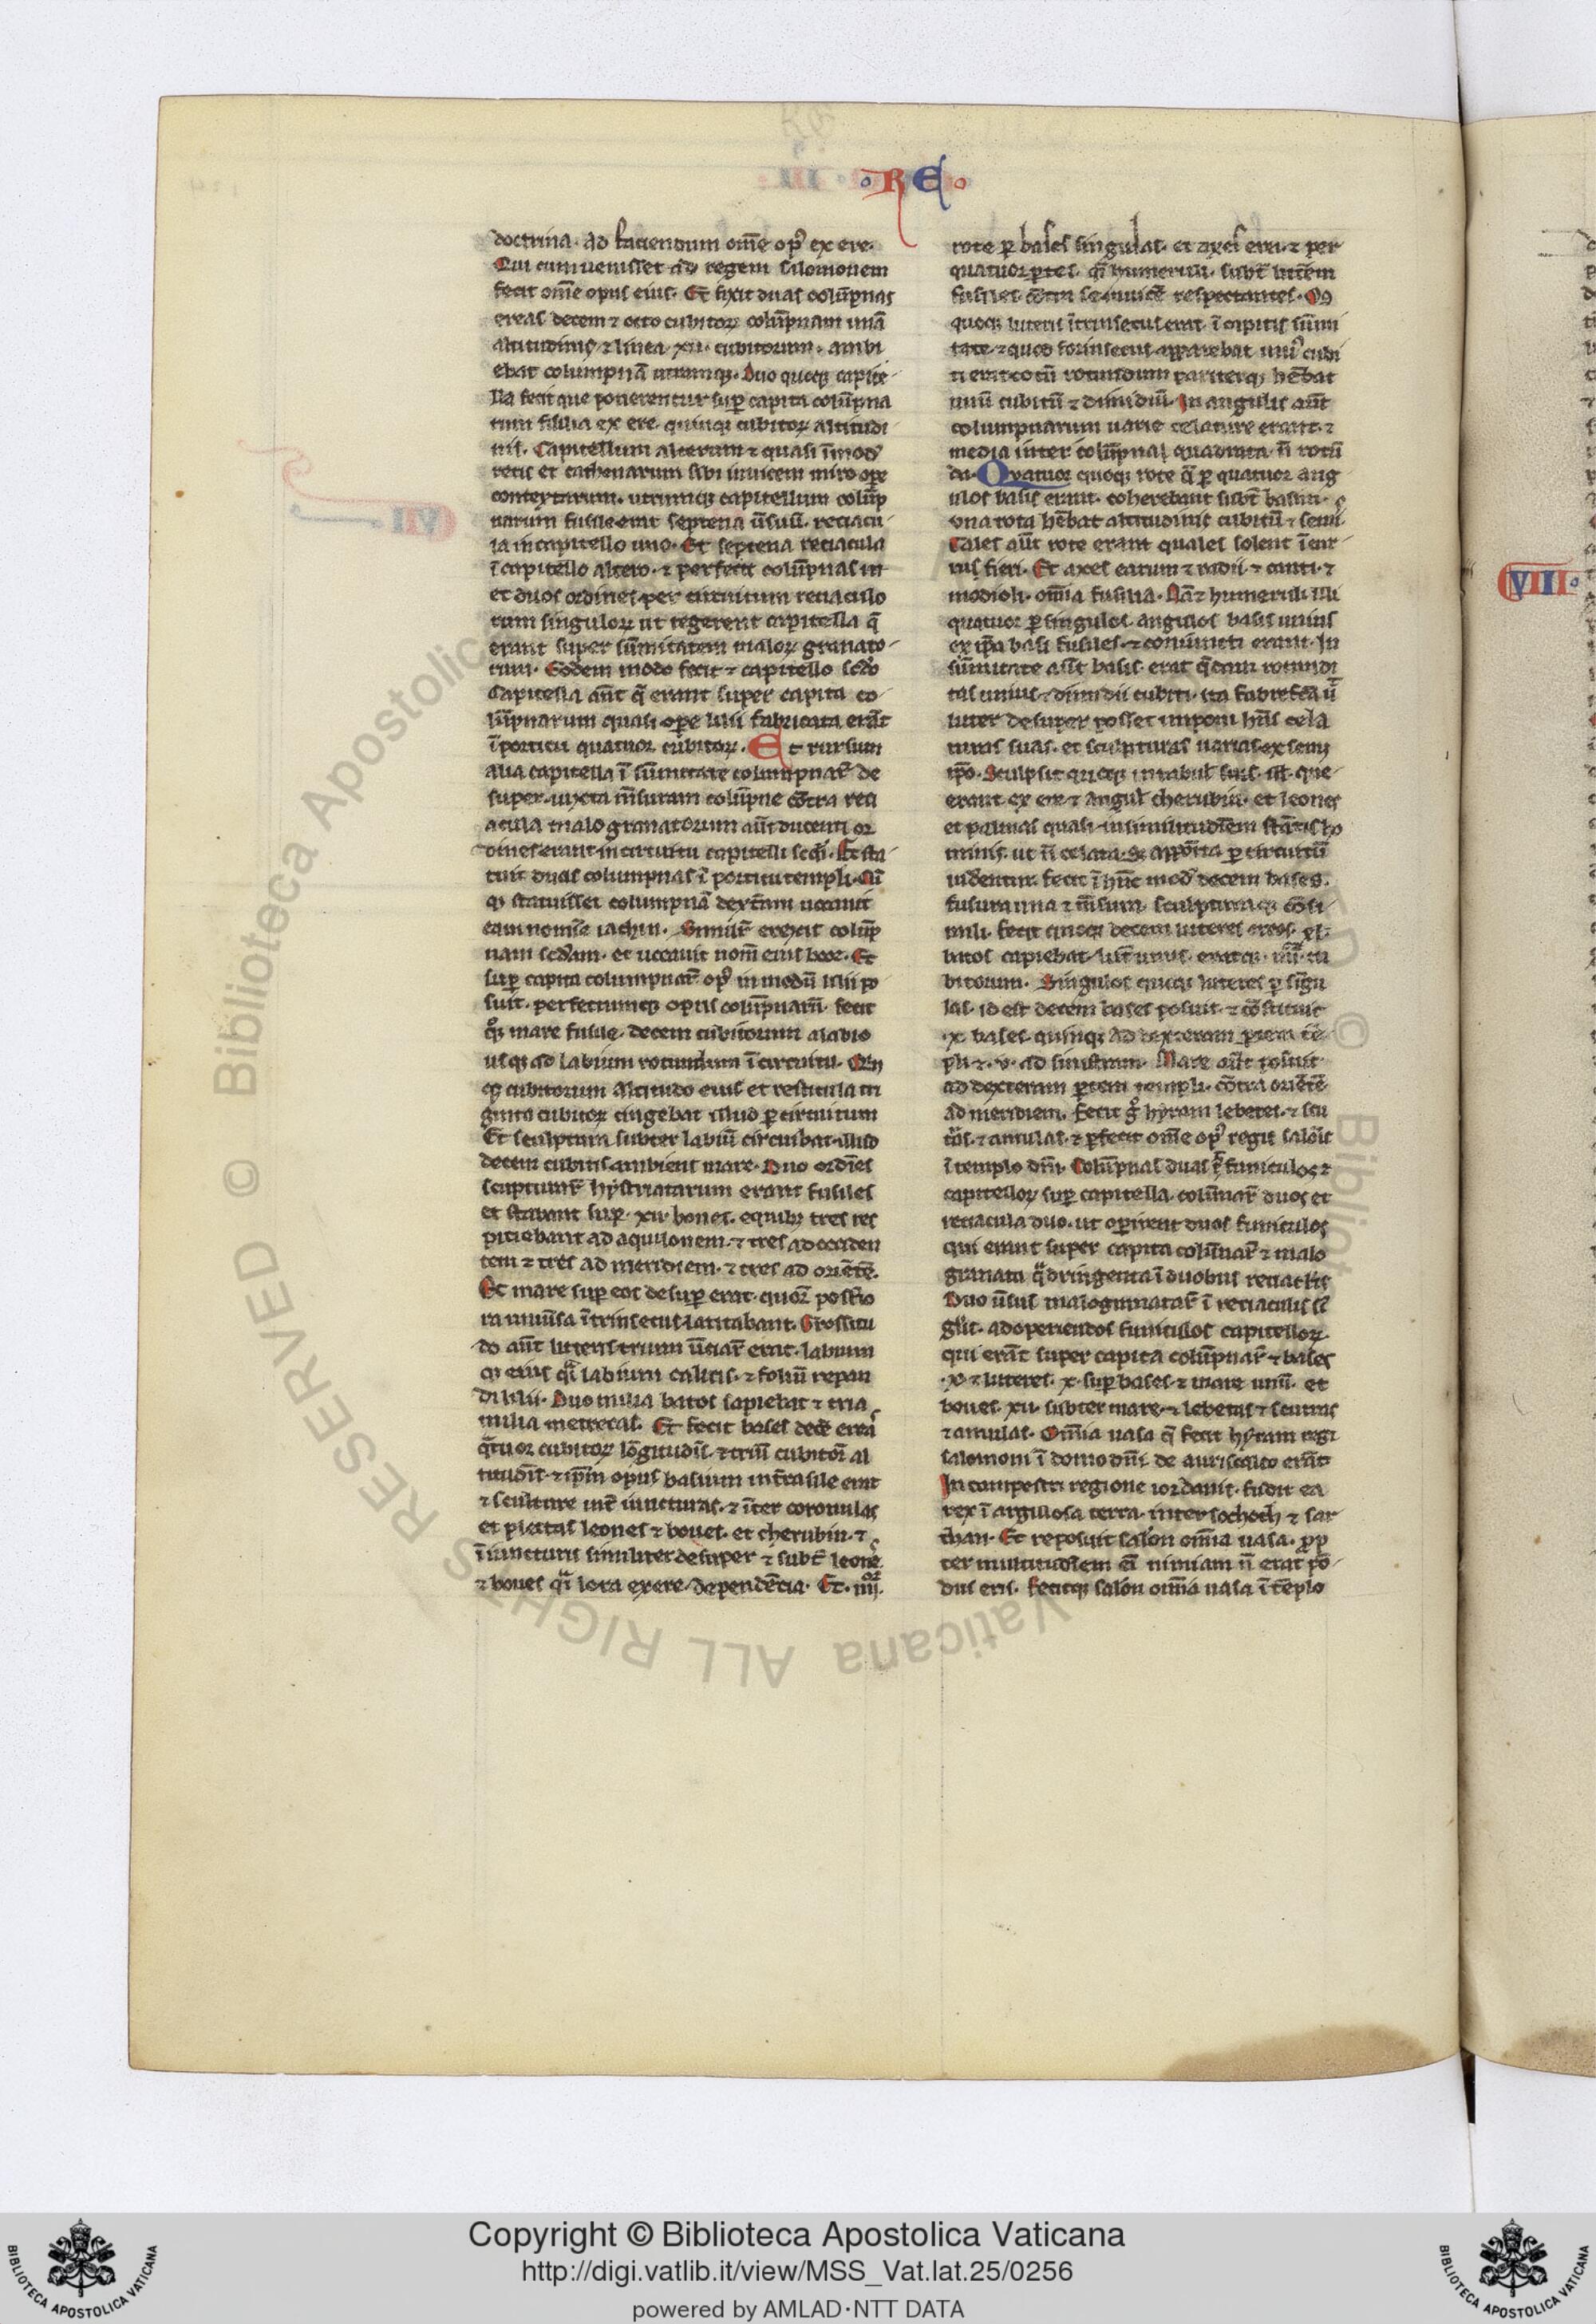 RE
doctrina. ad faciendum om̄e op᾽ ex ere.
Qui cum uenisset ad regem salomonem
fecit om̄e opus eius. Et fixit duas colūpnas
ereas decem ⁊ octo cubitoꝝ columpnam unā
altitudinis ⁊ linea xii. cubitorum. ambi
ebat columpnā utramqꝫ. Duo quoqꝫ capite
lla fecit que ponerentur suꝑ capita colūpna
rum fusilia ex ere. quinqꝫ cubitoꝝ altitudi
nis. Capitellum alterum ⁊ quasi ī mod᾽
retis et cathenarum sibi inuicem miro oꝑe
contextarum. utrumqꝫ capitellum colūp
narum fusile erat septena ūsuū. reciacu
la in capitello uno. Et septena reciacula
ī capitello altero. ⁊ perfecit colūpnas in
et duos ordines per circuitum reciaculo
rum singuloꝝ ut tegerent capitella q̄
erant super sūmitatem maloꝝ granato
rum. Eodem modo fecit ⁊ capitello scd̄o
Capitella aūt q̄ erant super capita co
lūpnarum quasi oꝑe lilii fabricata erāt
ī porticu quatuor cubitoꝝ. Et rursum
alia capitella ī sūmitate columpnaꝝ de
super iuxta m̄suram colūpne cōtra reci
acula malogranatorum aūt ducenti or
dines erant in circuitu capitelli scd̄i. Et sta
tuit duas columpnas ī porticu templi. Cū
qꝫ statuisset columpnā dext̄am uocauit
eam nomīe iachin. Simil᾽r erexit colūp
nam scd̄am. et uocauit nom̄ eius booz. Et
suꝑ capita columpnaꝝ op᾽ in modū lilii po
suit. perfectumqꝫ opus colūpnarū. fecit
qͦqꝫ mare fusile. decem cubitorum a labio
usqꝫ ad labium rotundum ī circuitu. Qin
qꝫ cubitorum altitudo eius et resticula tri
ginta cubitoꝝ cingebat illud ꝑ circuitum
Et sculptura subter labiū circuibat illud
decem cubitis ambiens mare. Duo ordīes
sculpturaꝝ hystriatarum erant fusiles
et stabant suꝑ. xii. boues. e quibꝫ tres res
piciebant ad aquilonem. ⁊ tres ad occiden
tem ⁊ tres ad meridiem. ⁊ tres ad oriētē.
Et mare suꝑ eos desuꝑ erat. quoꝝ post̄io
ra uniūsa ītrinsecus latitabant. Grossitu
do aūt luteris trium ūciaꝝ erat. labium
qꝫ eius qͣi labium calicis. ⁊ foliū repan
di lilii. Duo milia batos capiebat ⁊ tria
milia metretas. Et fecit bases decē ereas
qͣtuor cubitoꝝ lōgitudīs. ⁊ triū cubitoꝝ al
titudīs. ⁊ ip̄m opus basium int̄rasile erat
⁊ sculture int̄ iuncturas. ⁊ īter coronulas
et plectas leones ⁊ boues. et cherubin. ⁊
ī iuncturis similiter desuper ⁊ subt̄ leones
⁊ boues qͣi lora ex ere dependētia. Et. iiii.
rote ꝑ bases singulas. et axes erei. ⁊ per
quatuor ꝑtes. qͣi humeruli. subt̄ lut̄em
fusiles. cōtra se inuicē respectantes. Os
quoqꝫ luteris ītrinsecus erat. ī capitis sūmi
tate. ⁊ quod forinsecus apparebat uni᾽ cubi
ti erat totū rotundum pariterqꝫ hēbat
unū cubitū ⁊ dimidiū. In angulis aūt
columpnarum uarie celature erant. ⁊
media inter colūpnas quadrata. n̄ rotū
da. Quatuor quoqꝫ rote q̄ ꝑ quatuor ang
ulos basis erant. coherebant subt̄ basim.
Una rota hēbat altitudinis cubitū ⁊ semis.
Tales aūt rote erant quales solent ī cur
rus fieri. Et axes earum ⁊ radii. ⁊ canti. ⁊
modioli. om̄ia fusilia. Nā ⁊ humeruli illi
quatuor ꝑ singulos. angulos basis unius
ex ip̄a basi fusiles. ⁊ coniuncti erant. In
sūmitate aūt basis. erat q̄dam rotundi
tas unius. ⁊ dimidii cubiti. ita fabrefc̄a ut
luter desuper posset imponi hn̄s cela
turas suas. et sculpturas uarias ex semet
ip̄o. Sculpsit quoqꝫ in tabul᾽ suis. ill. que
erant ex ere ⁊ angul᾽ cherubin. et leones
et palmas quasi in similitudinem stātis ho
minis. ut n̄ celata. sꝫ appōita ꝑ circuitū
uidentur. fecit ī hūc mod᾽ decem bases.
fusura una ⁊ m̄sura. sculpturaqꝫ cōsi
mili. fecit quoqꝫ decem luteres ereos. xl.
batos capiebat lut̄ unus. eratqꝫ. iiii. cu
bitorum. Singulos quoqꝫ luteres ꝑ sīgu
las. id est decem bases posuit. ⁊ cōstituit
.x. bases. quinqꝫ ad dexteram ꝑtem tē
pli ⁊. v. ad sinistram. Mare aūt posuit
ad dexteram ꝑtem templi. cōtra oriētē
ad meridiem. Fecit gͦ hyram lebetes. ⁊ scu
tͣas. ⁊ amulas. ⁊ ꝑfecit om̄e op᾽ regis salōis
ī templo dn̄i. Colūpnas duas ⁊ funiculos ⁊
capitelloꝝ suꝑ capitella. colūnaꝝ duos et
reciacula duo. ut oꝑirent duos funiculos
qui erant super capita colūnaꝝ ⁊ malo
granata qͣdringenta ī duobus reciac̄lis
Duo ūsus malogranataꝝ ī reciaculis sī
gl᾽is. ad operiendos funicullos capitelloꝝ.
qui erāt super capita colūpnaꝝ ⁊ bases
.x. ⁊ luteres. x. suꝑ bases. ⁊ mare unū. et
boues. xii. subter mare. ⁊ lebetas ⁊ scutras
⁊ amulas. Om̄ia uasa q̄ fecit hyram regi
salomoni ī domo dn̄i. de auriscalco erāt
In campestri regione iordanis. fudit ea
rex ī argillosa terra. inter sochoth ⁊ sar
than. Et reposuit salon om̄ia uasa. ꝓp
ter multitudinem eī nimiam n̄ erat pō
dus eris. Fecitqꝫ salon om̄ia uasa ī tēplo
VIII
Copyright © Biblioteca Apostolica Vaticana
http://digi.vatlib.it/view/MSS_Vat.lat.25/0256
powered by AMLAD·NTT DATA